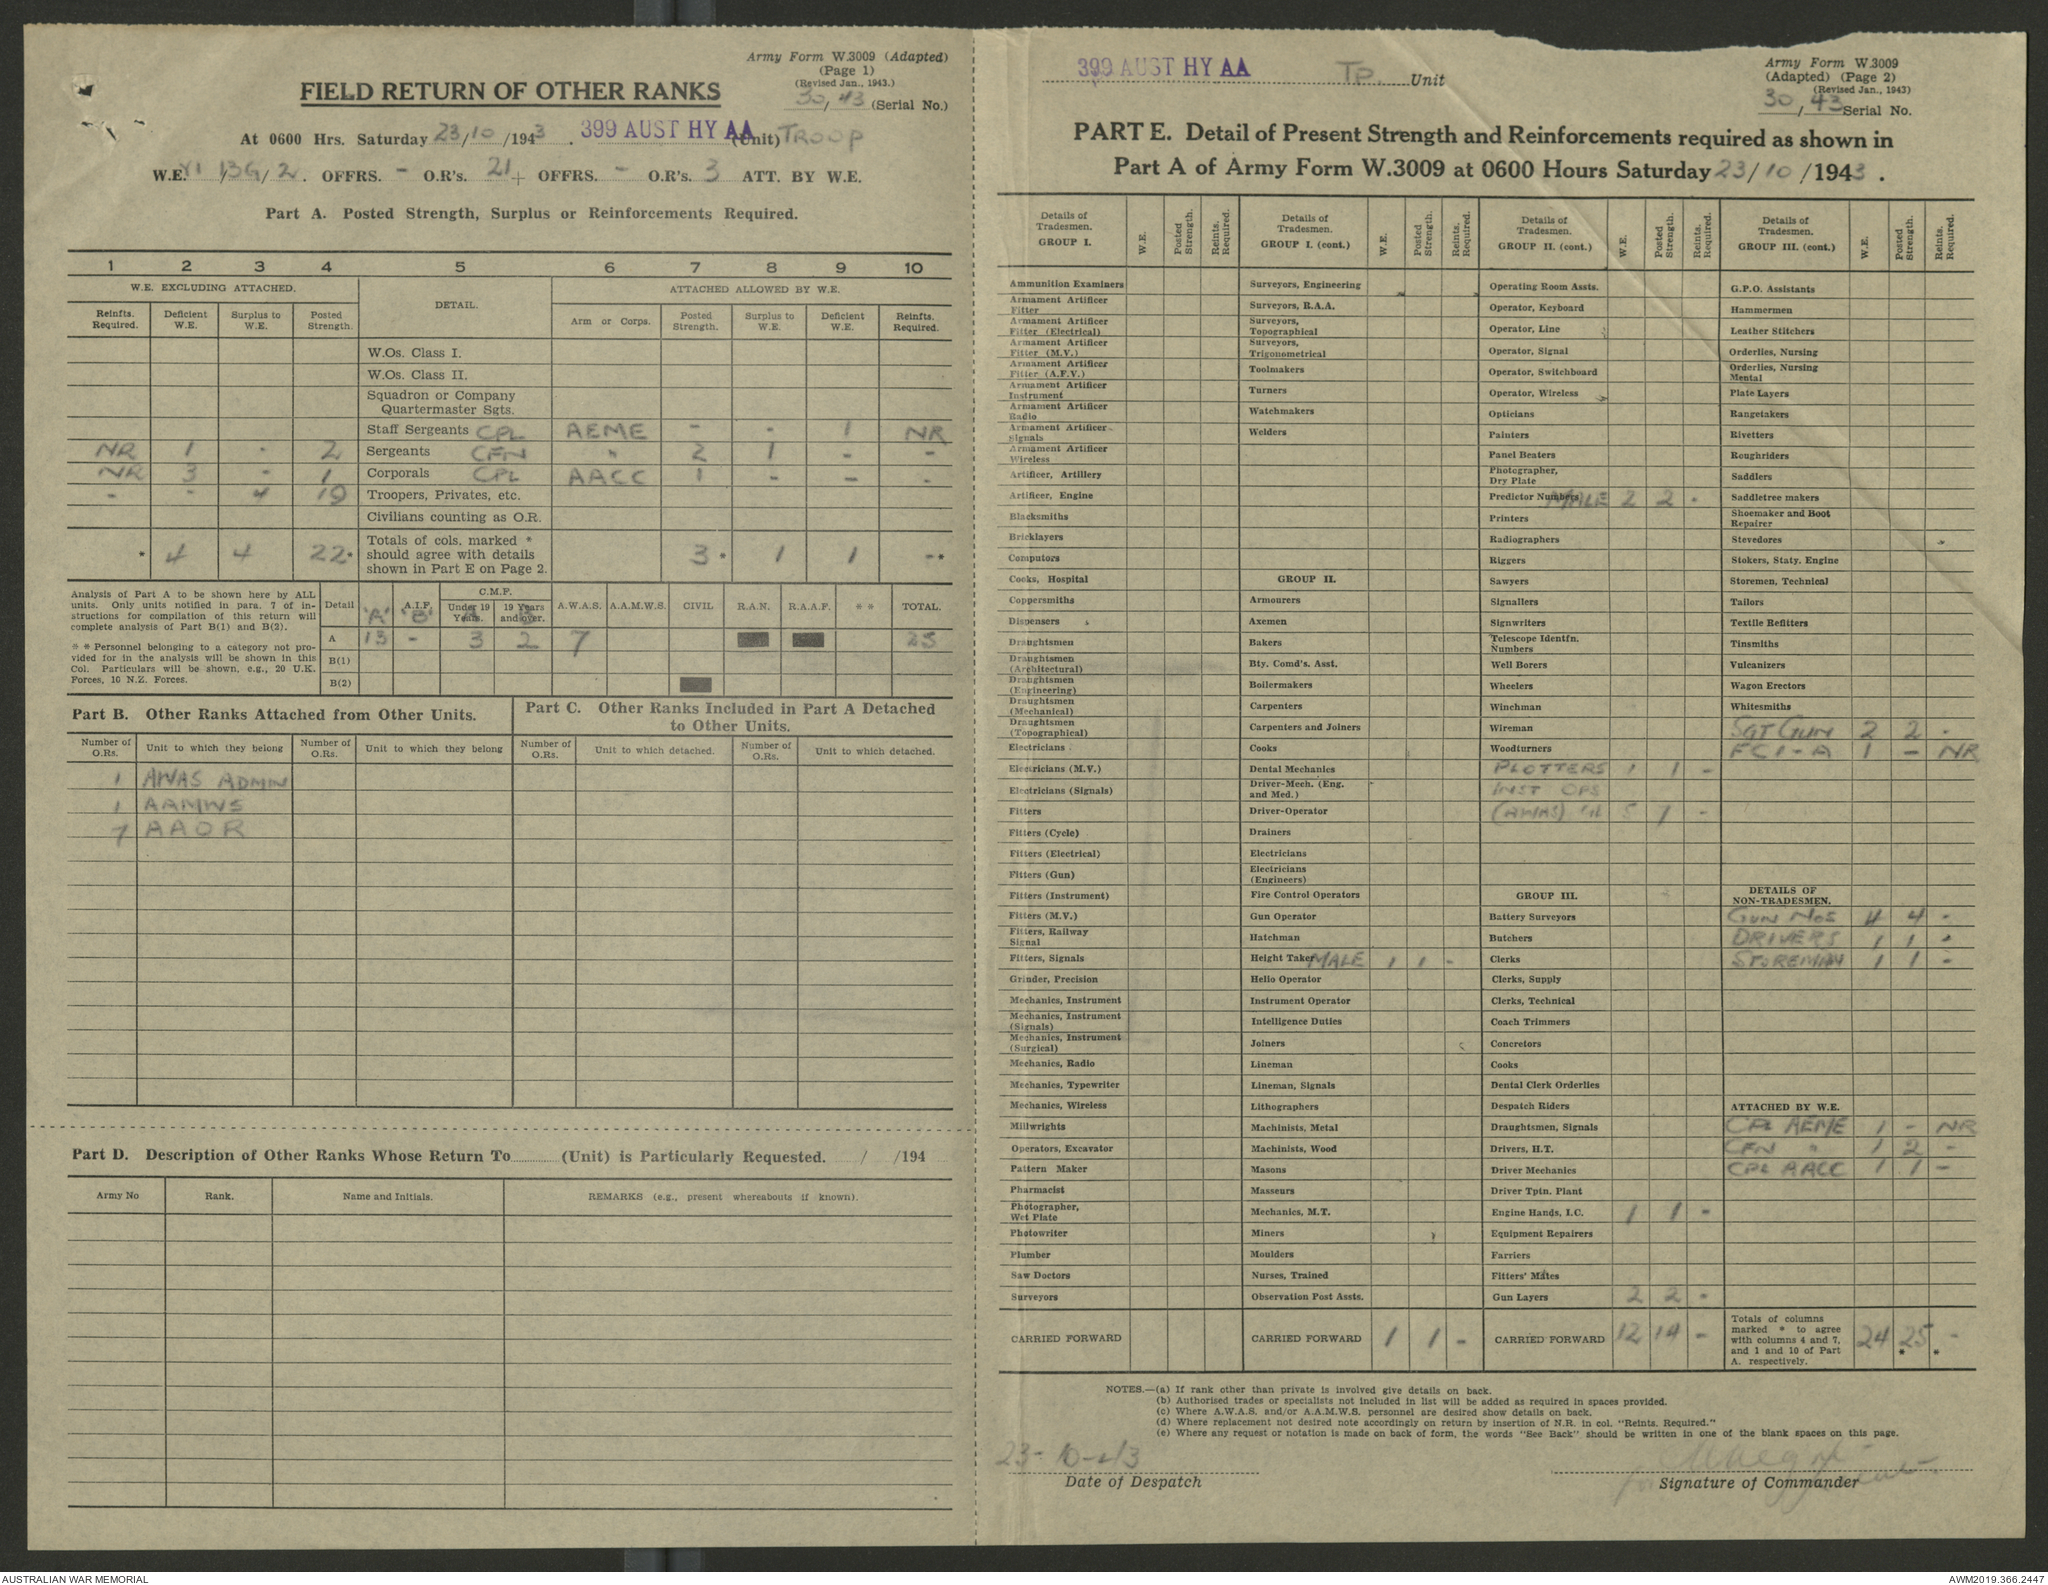 Army Form W.3009 (Adapted)
(Page 1)
(Revised Jan., 1943.)
FIELD RETURN OF OTHER RANKS
30/43 (Serial No.)
At 0600 Hrs. Saturday 23/10/1943. 399 AUST HY AA (Unit) TROOP
W.E. VI/13G/2. OFFRS. - O.R's. 21 + OFFRS. - O.R's. 3 ATT. BY W.E.
Part A. Posted Strength, Surplus or Reinforcements Required.
1 2 3 4 5 6 7 8 9 10
W.E. EXCLUDING ATTACHED. DETAIL. ATTACHED ALLOWED BY W.E.
Reinfts. Required. Deficient W.E. Surplus to W.E. Posted Strength. Arm or Corps. Posted Strength. Surplus to W.E. Deficient W.E. Reinfts. Required.
W.Os. Class I.
W.Os. Class II.
Squadron or Company
Quartermaster Sgts.
Staff Sergeants CPL AEME - - 1 NR
NR 1 - 2 Sergeants CFN " 2 1 - -
NR 3 - 1 Corporals CPL AACC 1 - - -
- - 4 19 Troopers, Privates, etc.
Civilians counting as O.R.
* 4 4 22* Totals of cols. marked * should agree with details shown in Part E on Page 2. 3* 1 1 -*
Analysis of Part A to be shown here by ALL
units. Only units notified in para. 7 of in-
structions for compilation of this return will
complete analysis of Part B(1) and B(2).
* * Personnel belonging to a category not pro-
vided for in the analysis will be shown in this
Col. Particulars will be shown, e.g., 20 U.K.
Forces, 10 N.Z. Forces.
Detail 'A' A.I.F. 'B' C.M.F. Under 19 Years. 19 Years and over. A.W.A.S. A.A.M.W.S. CIVIL R.A.N. R.A.A.F. * * TOTAL.
A 13 - 3 2 7 25
B(1)
B(2)
Part B. Other Ranks Attached from Other Units.
Part C. Other Ranks Included in Part A Detached
to Other Units.
Number of O.Rs. Unit to which they belong Number of O.Rs. Unit to which they belong Number of O.Rs. Unit to which detached. Number of O.Rs. Unit to which detached.
1 AWAS ADMIN
1 AAMWS
7 AAOR
Part D. Description of Other Ranks Whose Return To (Unit) is Particularly Requested. / /194
Army No Rank. Name and Initials. REMARKS (e.g., present whereabouts if known).
399 AUST HY AA TP. Unit
Army Form W.3009
(Adapted) (Page 2)
(Revised Jan., 1943)
30/43 Serial No.
PART E. Detail of Present Strength and Reinforcements required as shown in
Part A of Army Form W.3009 at 0600 Hours Saturday 23/10/1943.
Details of Tradesmen. GROUP I. W.E. Posted Strength. Reints. Required.
Ammunition Examiners
Armament Artificer Fitter
Armament Artificer Fitter (Electrical)
Armament Artificer Fitter (M.V.)
Armament Artificer Fitter (A.F.V.)
Armament Artificer Instrument
Armament Artificer Radio
Armament Artificer Signals
Armament Artificer Wireless
Artificer, Artillery
Artificer, Engine
Blacksmiths
Bricklayers
Computors
Cooks, Hospital
Coppersmiths
Dispensers
Draughtsmen
Draughtsmen (Architectural)
Draughtsmen (Engineering)
Draughtsmen (Mechanical)
Draughtsmen (Topographical)
Electricians
Electricians (M.V.)
Electricians (Signals)
Fitters
Fitters (Cycle)
Fitters (Electrical)
Fitters (Gun)
Fitters (Instrument)
Fitters (M.V.)
Fitters, Railway Signal
Fitters, Signals
Grinder, Precision
Mechanics, Instrument
Mechanics, Instrument (Signals)
Mechanics, Instrument (Surgical)
Mechanics, Radio
Mechanics, Typewriter
Mechanics, Wireless
Millwrights
Operators, Excavator
Pattern Maker
Pharmacist
Photographer, Wet Plate
Photowriter
Plumber
Saw Doctors
Surveyors
CARRIED FORWARD
Details of Tradesmen. GROUP I. (cont.) W.E. Posted Strength. Reints. Required.
Surveyors, Engineering
Surveyors, R.A.A.
Surveyors, Topographical
Surveyors, Trigonometrical
Toolmakers
Turners
Watchmakers
Welders
GROUP II.
Armourers
Axemen
Bakers
Bty. Comd's. Asst.
Boilermakers
Carpenters
Carpenters and Joiners
Cooks
Dental Mechanics
Driver-Mech. (Eng. and Med.)
Driver-Operator
Drainers
Electricians
Electricians (Engineers)
Fire Control Operators
Gun Operator
Hatchman
Height Taker MALE 1 1 -
Helio Operator
Instrument Operator
Intelligence Duties
Joiners
Lineman
Lineman, Signals
Lithographers
Machinists, Metal
Machinists, Wood
Masons
Masseurs
Mechanics, M.T.
Miners
Moulders
Nurses, Trained
Observation Post Assts.
CARRIED FORWARD 1 1 -
Details of Tradesmen. GROUP II. (cont.) W.E. Posted Strength. Reints. Required.
Operating Room Assts.
Operator, Keyboard
Operator, Line
Operator, Signal
Operator, Switchboard
Operator, Wireless
Opticians
Painters
Panel Beaters
Photographer, Dry Plate
Predictor Numbers MALE 2 2 -
Printers
Radiographers
Riggers
Sawyers
Signallers
Signwriters
Telescope Identfn. Numbers
Well Borers
Wheelers
Winchman
Wireman
Woodturners
PLOTTERS 1 1 -
INST OPS
(AWAS) 5 7 -
GROUP III.
Battery Surveyors
Butchers
Clerks
Clerks, Supply
Clerks, Technical
Coach Trimmers
Concretors
Cooks
Dental Clerk Orderlies
Despatch Riders
Draughtsmen, Signals
Drivers, H.T.
Driver Mechanics
Driver Tptn. Plant
Engine Hands, I.C. 1 1 -
Equipment Repairers
Farriers
Fitters' Mates
Gun Layers 2 2 -
CARRIED FORWARD 12 14 -
Details of Tradesmen. GROUP III. (cont.) W.E. Posted Strength. Reints. Required.
G.P.O. Assistants
Hammermen
Leather Stitchers
Orderlies, Nursing
Orderlies, Nursing Mental
Plate Layers
Rangetakers
Rivetters
Roughriders
Saddlers
Saddletree makers
Shoemaker and Boot Repairer
Stevedores
Stokers, Staty. Engine
Storemen, Technical
Tailors
Textile Refitters
Tinsmiths
Vulcanizers
Wagon Erectors
Whitesmiths
SGT GUN 2 2 -
FC1-A 1 - NR
DETAILS OF NON-TRADESMEN.
GUN NOS 4 4 -
DRIVERS 1 1 -
STOREMAN 1 1 -
ATTACHED BY W.E.
CPL AEME 1 - NR
CFN " 1 2 -
CPL AACC 1 1 -
Totals of columns marked * to agree with columns 4 and 7, and 1 and 10 of Part A. respectively. 24 25* -*
NOTES.—(a) If rank other than private is involved give details on back.
(b) Authorised trades or specialists not included in list will be added as required in spaces provided.
(c) Where A.W.A.S. and/or A.A.M.W.S. personnel are desired show details on back.
(d) Where replacement not desired note accordingly on return by insertion of N.R. in col. "Reints. Required."
(e) Where any request or notation is made on back of form, the words "See Back" should be written in one of the blank spaces on this page.
23-10-43
Date of Despatch
Signature of Commander
AUSTRALIAN WAR MEMORIAL
AWM2019.366.2447